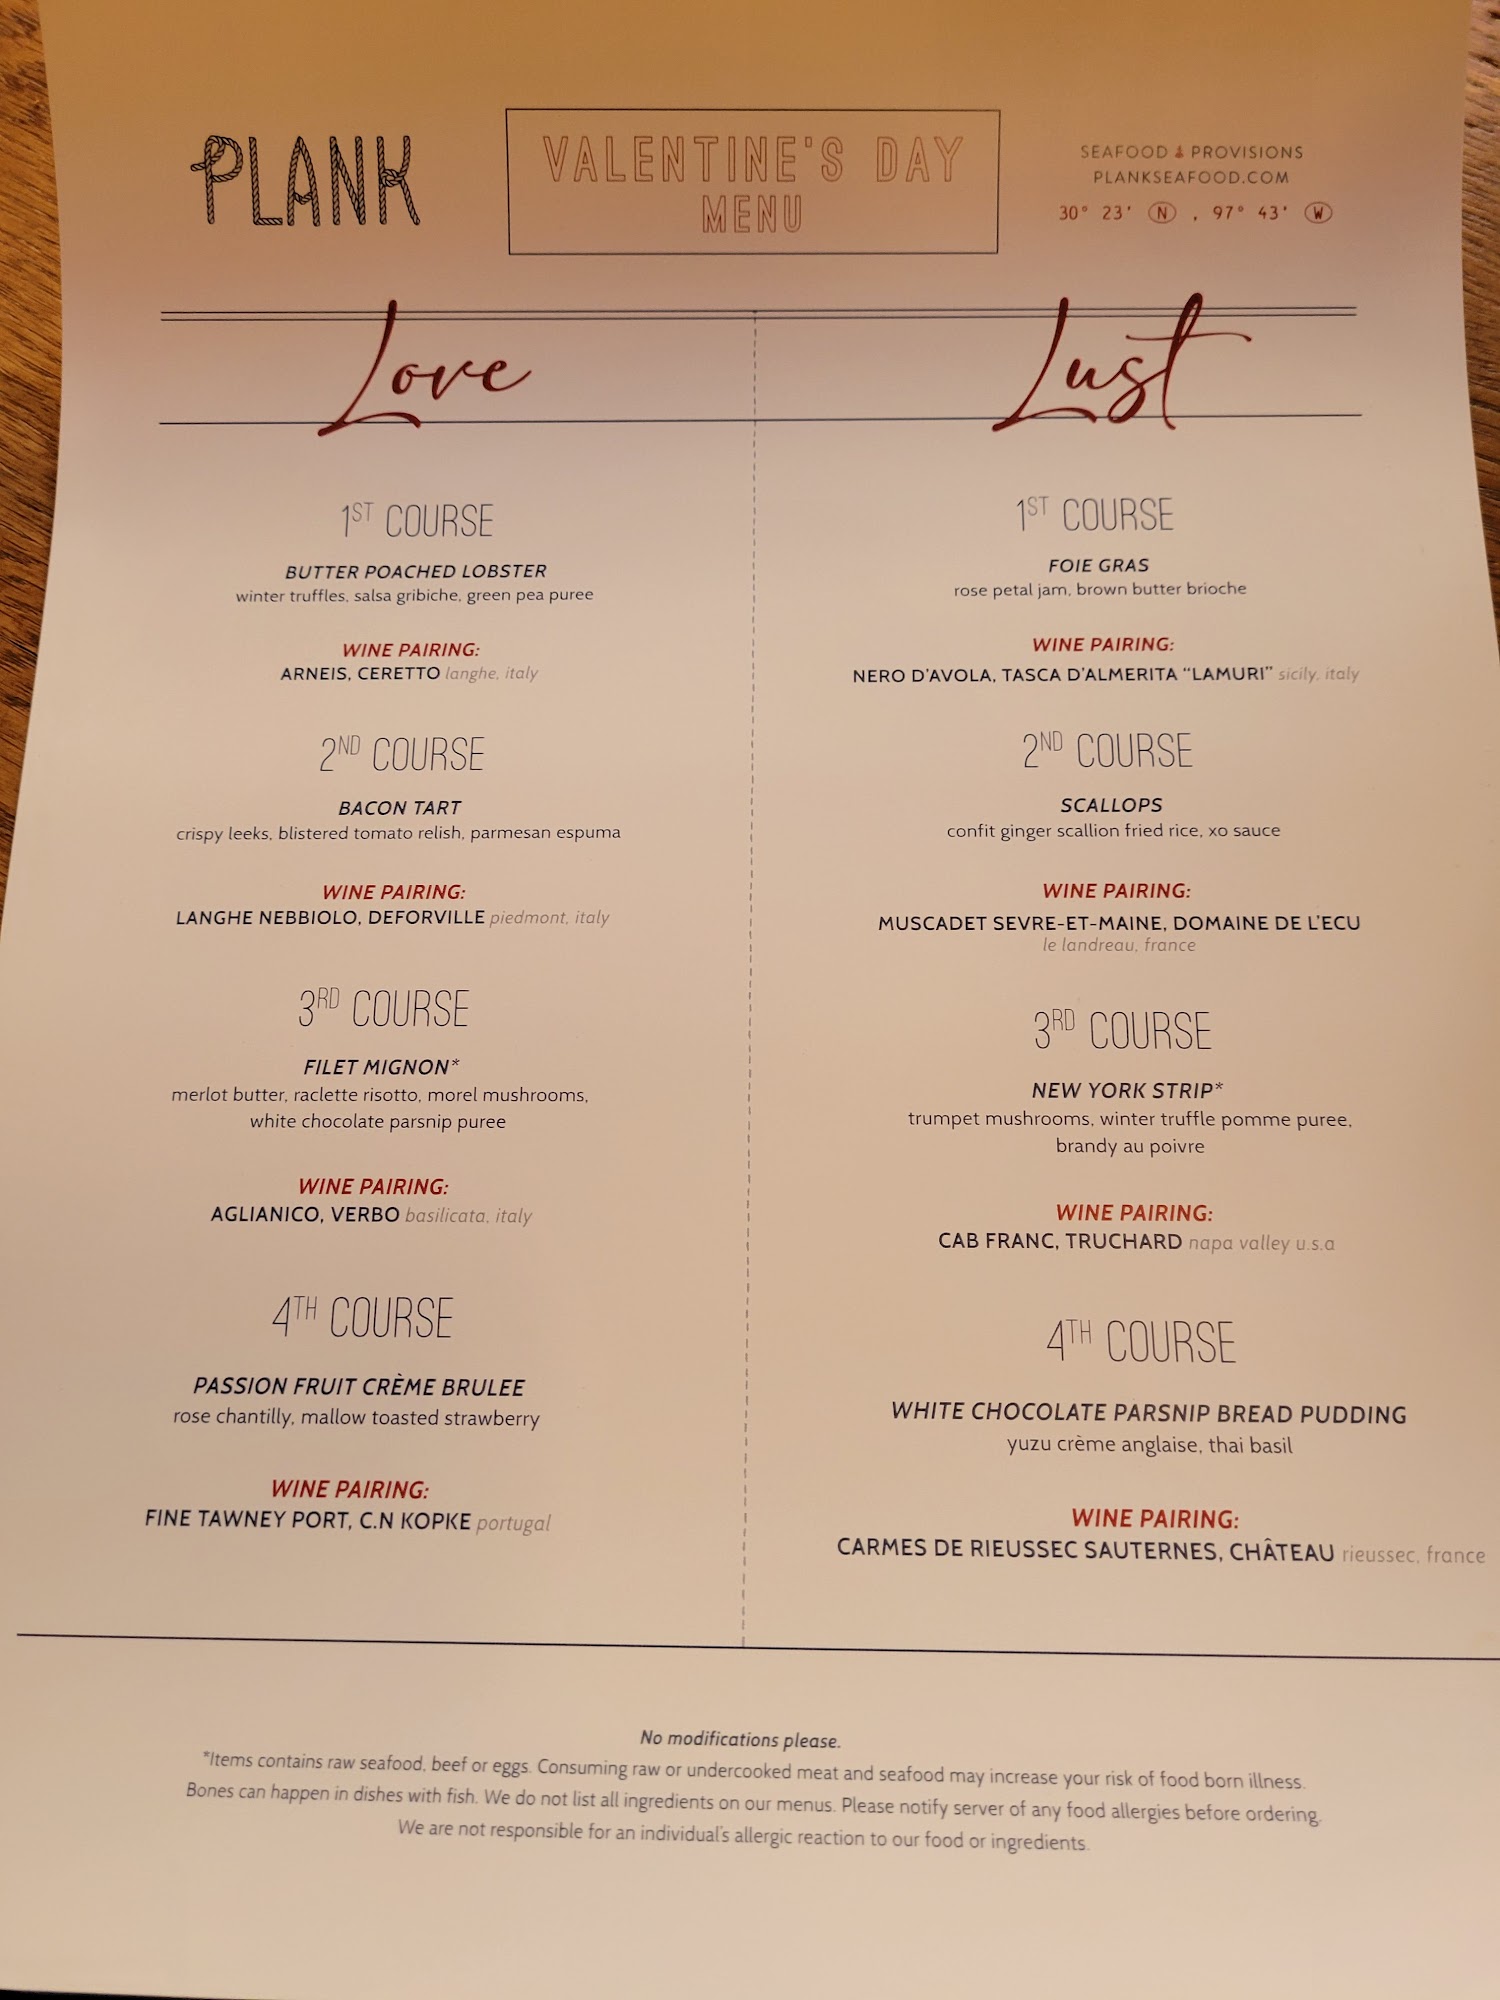 PLANK
VALENTINE'S DAY
MENU
SEAFOOD & PROVISIONS
PLANKSEAFOOD.COM
30° 23' N , 97° 43' W
Love
1ST COURSE
BUTTER POACHED LOBSTER
winter truffles, salsa gribiche, green pea puree
WINE PAIRING:
ARNEIS, CERETTO langhe, italy
2ND COURSE
BACON TART
crispy leeks, blistered tomato relish, parmesan espuma
WINE PAIRING:
LANGHE NEBBIOLO, DEFORVILLE piedmont, italy
3RD COURSE
FILET MIGNON*
merlot butter, raclette risotto, morel mushrooms,
white chocolate parsnip puree
WINE PAIRING:
AGLIANICO, VERBO basilicata, italy
4TH COURSE
PASSION FRUIT CRÈME BRULEE
rose chantilly, mallow toasted strawberry
WINE PAIRING:
FINE TAWNEY PORT, C.N KOPKE portugal
Lust
1ST COURSE
FOIE GRAS
rose petal jam, brown butter brioche
WINE PAIRING:
NERO D'AVOLA, TASCA D'ALMERITA “LAMURI” sicily, italy
2ND COURSE
SCALLOPS
confit ginger scallion fried rice, xo sauce
WINE PAIRING:
MUSCADET SEVRE-ET-MAINE, DOMAINE DE L'ECU
le landreau, france
3RD COURSE
NEW YORK STRIP*
trumpet mushrooms, winter truffle pomme puree,
brandy au poivre
WINE PAIRING:
CAB FRANC, TRUCHARD napa valley u.s.a
4TH COURSE
WHITE CHOCOLATE PARSNIP BREAD PUDDING
yuzu crème anglaise, thai basil
WINE PAIRING:
CARMES DE RIEUSSEC SAUTERNES, CHÂTEAU rieussec, france
No modifications please.
*Items contains raw seafood, beef or eggs. Consuming raw or undercooked meat and seafood may increase your risk of food born illness.
Bones can happen in dishes with fish. We do not list all ingredients on our menus. Please notify server of any food allergies before ordering.
We are not responsible for an individual's allergic reaction to our food or ingredients.